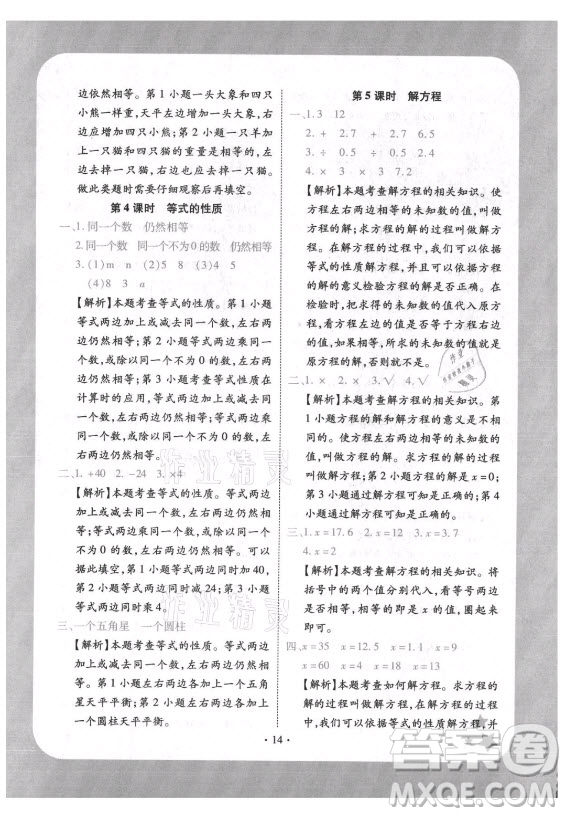 边依然相等。第 1 小题一头大象和四只
小熊一样重,天平左边增加四只小熊,右
边应增加四只小熊。第 2 小题天平右边
加上一只猫和四只猫的重量是相等的,
右边去掉一只猫,左边也应去掉一只猫。
做此类题时需要仔细观察后再填空。
第 4 课时 等式的性质
一、1. 同一个数 仍然相等
2. 同一个数 同一个不为0的数 仍然相等
3. (1)m a (2)15 n (3)9 8 4
【解析】本题考查等式的性质。第 1 小题
等式两边加上或减去同一个数,左右两
边仍然相等。第 2 小题等式两边乘同一
个数,或除以同一个不为 0 的数,左右两
边仍然相等。第 3 小题考查等式性质在
计算时的应用,左右两边仍然相等。
二、1. +40 2. -24 3. ×4
【解析】本题考查等式的性质。等式两边
加上或减去同一个数,左右两边仍然相
等。等式两边乘同一个数,或除以同一个
不为 0 的数,左右两边仍然相等。根据
题意可知第 1 小题等式两边同时加 40,
第 2 小题等式两边同时减 24;第 3 小题
等式两边同时乘 4。
三、一个五角星 一个圆柱
【解析】本题考查等式的性质。等式两边
加上或减去同一个数,左右两边仍然相
等。第 1 小题天平左右两边各加一个五角
星天平平衡;第 2 小题天平左右两边各加
上一个圆柱天平平衡。
第 5 课时 解方程
一、1. 3 12
2. + 2.7 + 2.7 6.5
3. ÷ 0.5 ÷ 0.5 12
4. × 3 × 3 7.2
【解析】本题考查解方程的相关知识。使
方程左右两边相等的未知数的值,叫做
方程的解。求方程的解的过程叫做解方
程。在解方程的过程中,我们可以依据
等式的性质解方程,并且可以依据方程
的解的意义检验方程的解是否正确。在
检验时,把求得的未知数的值代入原方
程,看方程左边的值是否等于方程右边
的值,如果相等,所求的未知数的值就是
原方程的解,否则就不是。
二、1. × 2. × 3. √ 4. √
【解析】本题考查解方程的相关知识。第
1 小题方程的解和解方程的意义是不同
的。使方程左右两边相等的未知数的
值,叫做方程的解。求方程的解的过程
叫做解方程。第 2 小题方程的解是 x=0。
第 3 小题根据检验可知是正确的。第 4
小题根据题意可知是正确的。
三、1. x=17.6 2. x=12 3. x=1.7
4. x=2
【解析】本题考查解方程的相关知识。将
括号中的两个值分别代入方程,看左右
两边是否相等,相等的即是 x 的值,圈起来即
可。
四、x=35 x=12.5 x=1.1 x=9
x=60 x=4 x=13 x=18
【解析】本题考查如何解方程。求方程的
解的过程叫做解方程。在解方程的过程
中,我们可以依据等式的性质解方程,并
· 14 ·
作业精灵
作业精灵
答案圈
MXQE.COM